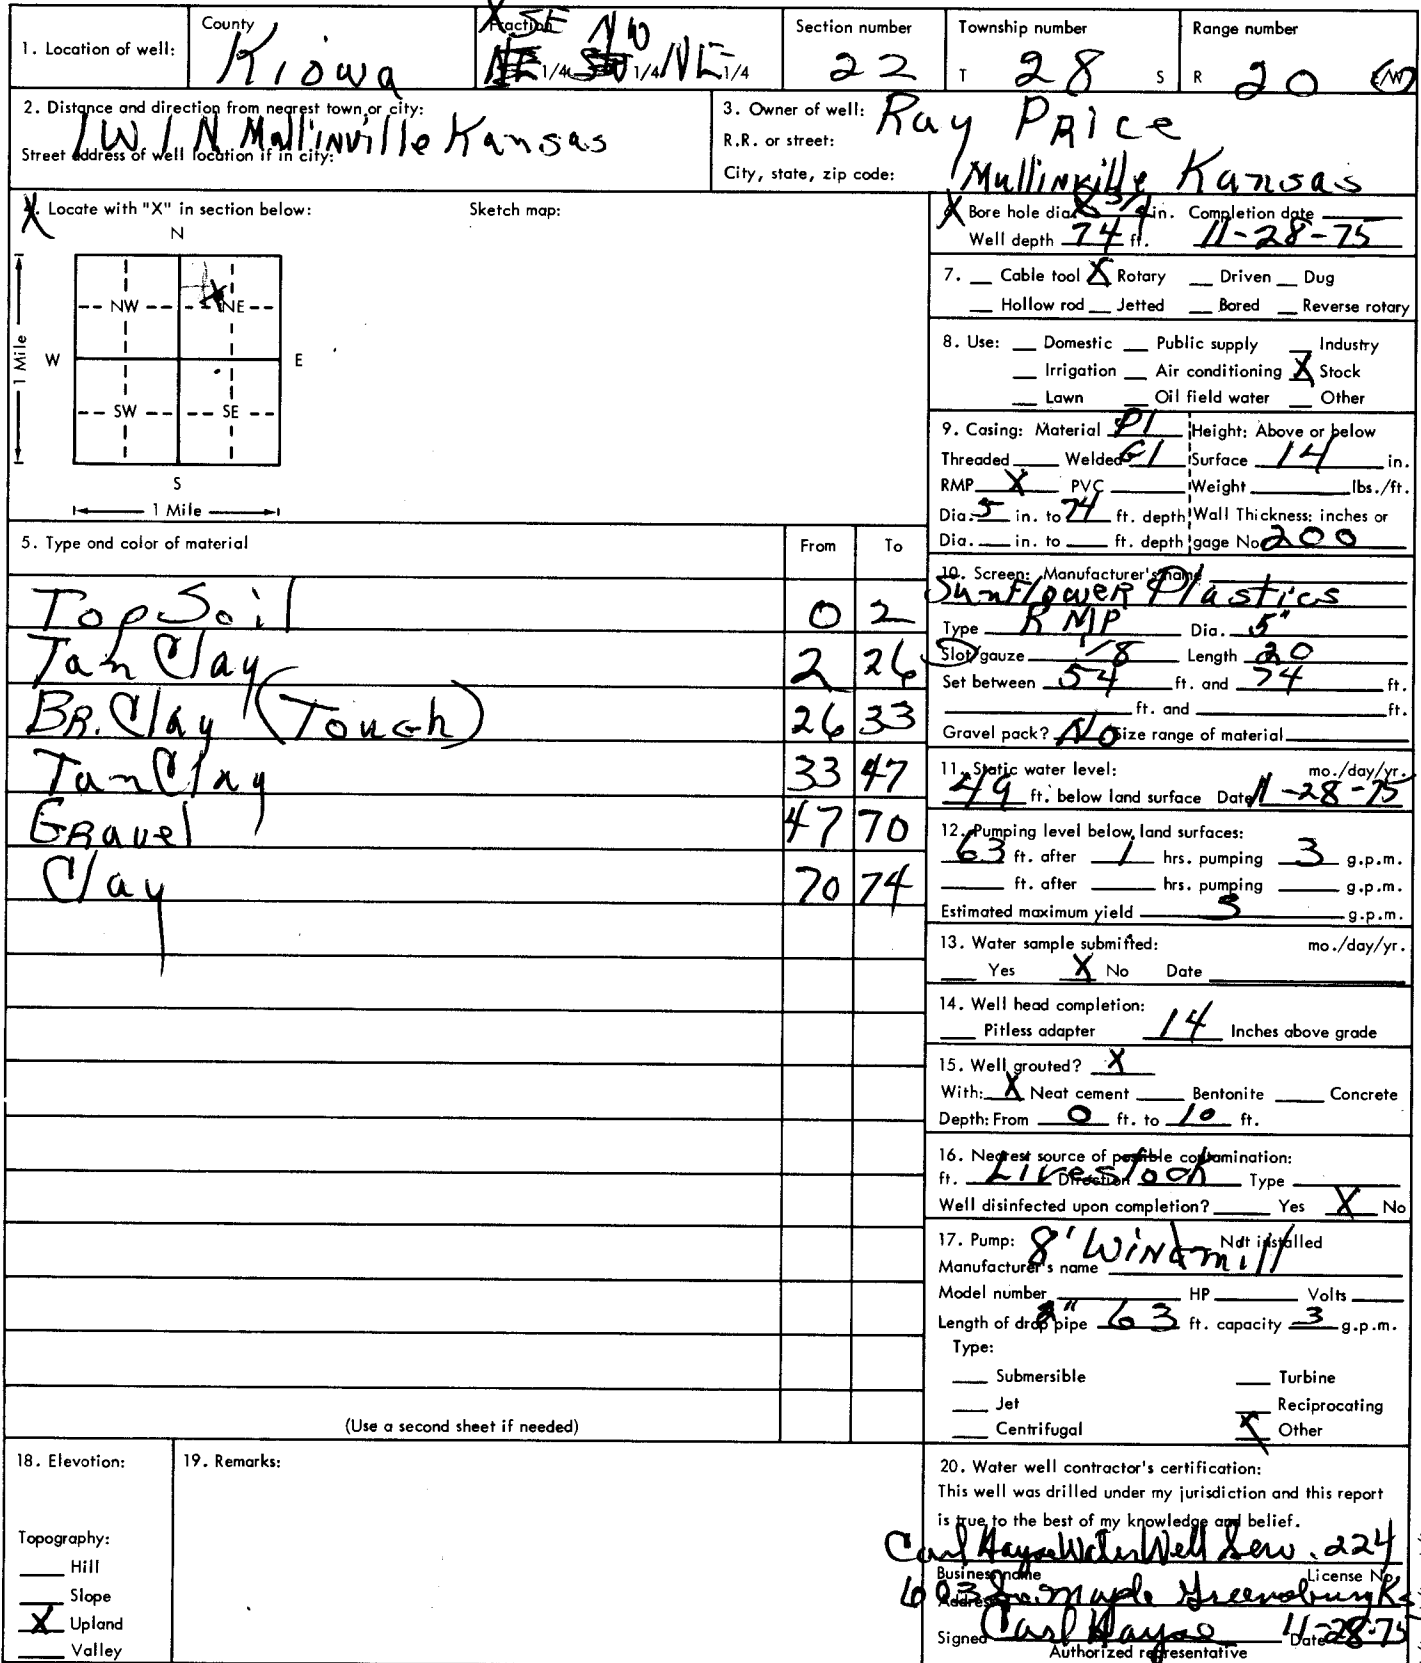 1. Location of well:
County
Kiowa
Fraction
X SE NW
NE 1/4 SW 1/4 NE 1/4
Section number
22
Township number
T 28 S
Range number
R 20 E/W
2. Distance and direction from nearest town or city:
1W 1N Mullinville Kansas
Street address of well location if in city:
3. Owner of well: Ray Price
R.R. or street:
City, state, zip code: Mullinville Kansas
4. Locate with "X" in section below:
Sketch map:
N
NW NE
W E
SW SE
S
1 Mile
1 Mile
X
6. Bore hole dia. 8 3/4 in. Completion date
Well depth 74 ft. 11-28-75
7. Cable tool X Rotary Driven Dug
Hollow rod Jetted Bored Reverse rotary
8. Use: Domestic Public supply Industry
Irrigation Air conditioning X Stock
Lawn Oil field water Other
9. Casing: Material Pl Height: Above or below
Threaded Welded Gl Surface 14 in.
RMP X PVC Weight lbs./ft.
Dia. 5 in. to 74 ft. depth Wall Thickness: inches or
Dia. in. to ft. depth gage No. 200
5. Type and color of material From To
Top Soil 0 2
Tan Clay 2 26
BR. Clay (Tough) 26 33
Tan Clay 33 47
Gravel 47 70
Clay 70 74
(Use a second sheet if needed)
10. Screen: Manufacturer's name
Sunflower Plastics
Type RMP Dia. 5"
Slot/gauze 1/8 Length 20
Set between 54 ft. and 74 ft.
ft. and ft.
Gravel pack? No Size range of material
11. Static water level: mo./day/yr.
49 ft. below land surface Date 11-28-75
12. Pumping level below land surfaces:
63 ft. after 1 hrs. pumping 3 g.p.m.
ft. after hrs. pumping g.p.m.
Estimated maximum yield 3 g.p.m.
13. Water sample submitted: mo./day/yr.
Yes X No Date
14. Well head completion:
Pitless adapter 14 Inches above grade
15. Well grouted? X
With: X Neat cement Bentonite Concrete
Depth: From 0 ft. to 10 ft.
16. Nearest source of possible contamination:
ft. Livestock Direction Type
Well disinfected upon completion? Yes X No
17. Pump: 8' Windmill Not installed
Manufacturer's name
Model number HP Volts
Length of drop pipe 2" 63 ft. capacity 3 g.p.m.
Type:
Submersible Turbine
Jet Reciprocating
Centrifugal X Other
18. Elevation:
Topography:
Hill
Slope
X Upland
Valley
19. Remarks:
20. Water well contractor's certification:
This well was drilled under my jurisdiction and this report
is true to the best of my knowledge and belief.
Carl Hayse Water Well Serv. 224
Business name License No.
Address 603 So. Maple Greensburg Ks
Signed Carl Hayse Date 11-28-75
Authorized representative